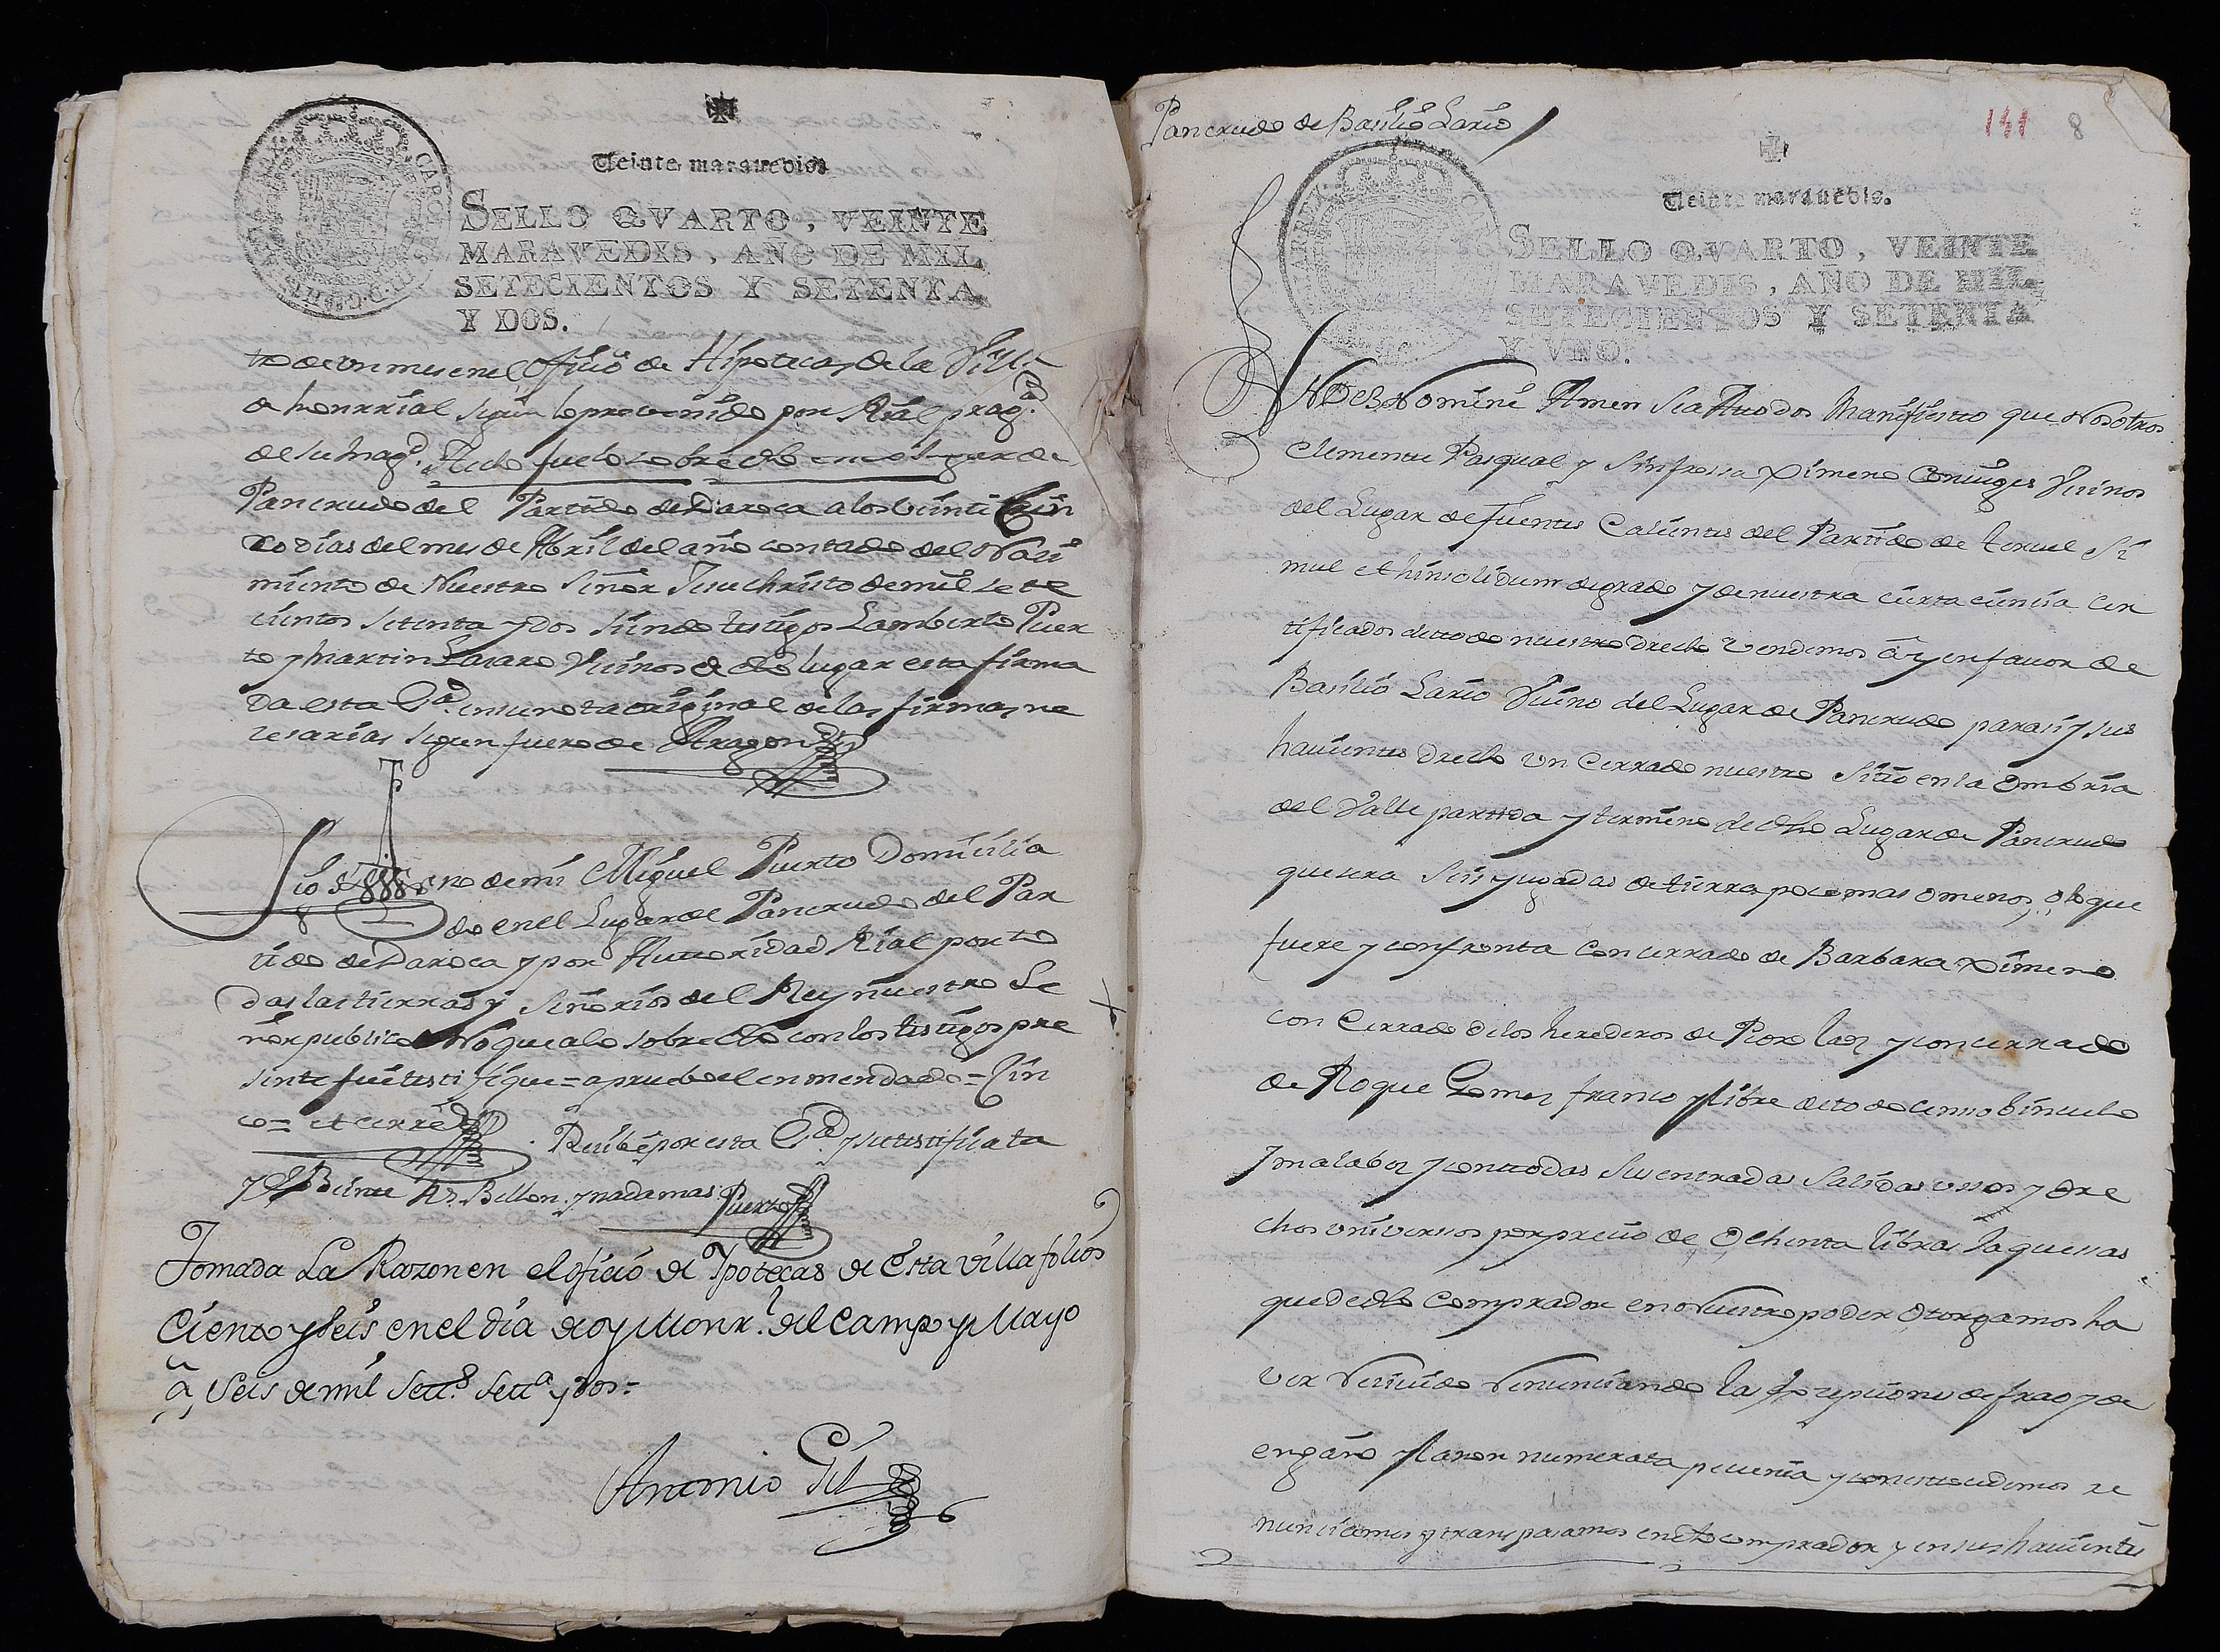 Veinte maravedis
SELLO QVARTO, VEINTE
MARAVEDIS, AÑO DE MIL
SETECIENTOS Y SETENTA
Y DOS.
tro de un mes en el Oficio de Hipotecas de la Villa
de Monrrial segun lo prevenido por Rial prag.ca
de su Mag.d Hecho fue lo sobre dho en el Lugar de
Pancrudo del Partido de Daroca a los veinti Cin
co dias del mes de Abril del año contado del Naci
miento de Nuestro Señor Jesu Christo de mil sete
cientos setenta y dos siendo testigos Lamberto Puer
to y Martin Lazaro Vecinos de dho lugar esta firma
da esta Es.ra en su nota original de las firmas ne
zesarias segun fuero de Aragon
Sig no de mi Miguel Puerto Domicilia
do en el Lugar de Pancrudo del Par
tido de Daroca y por Auttoridad Rial por to
das las tierras y Señorios del Rey nuestro Se
ñor publico No que a lo sobre dho con los testigos pre
sente fui testifique = apruebo el enmendado = Cin
co = et cerre
Recibi por esta Es.ra y su testificata
Beinte Rs. Bellon y nada mas Puerto
Tomada La Razon en el oficio de Ypotecas de Esta villa folios
Ciento y seis en el dia de oy Monr.l del Campo y Mayo
a, seis de mil Sett.s sett.a y dos =
Antonio Gil
Pancrudo de Basilio Lario
141 8
Veinte maravedis.
SELLO QVARTO, VEINTE
MARAVEDIS, AÑO DE MIL
SETECIENTOS Y SETENTA
Y VNO.
IN Dei Nomine Amen Sea Attodos Manifiesto que Nosotros
Clemente Pasqual y Sinfrosa Ximeno Conuiges Vecinos
del Lugar de fuentes Calientes del Partido de Teruel Si
mul et hinsolidum de grado y de nuestra cierta ciencia cer
tificados de todo nuestro drecho Vendemos a y en favor de
Basilio Lario Vecino del Lugar de Pancrudo para si y sus
havientes drecho un Cerrado nuestro Sitio en la Ombria
del Valle partida y termino de dho Lugar de Pancrudo
que sera Seis yugadas de tierra poco mas o menos, o lo que
fuere y confronta con cerrado de Barbara Ximeno
con Cerrado de los herederos de Roxo y con cerrado
de Roque Gomez franco y libre de todo censo binculo
y mala boz y con todas sus entradas Salidas ussos y dre
chos universsos por precio de Ochenta libras Jaquessas
que de dho Comprador en Nuestro poder Otorgamos ha
ver Recivido Renunciando las Excepciones de frao y de
engaño y la non numerata pecunia y con esto cedemos re
nunciamos y transpasamos en dho comprador y en sus havientes